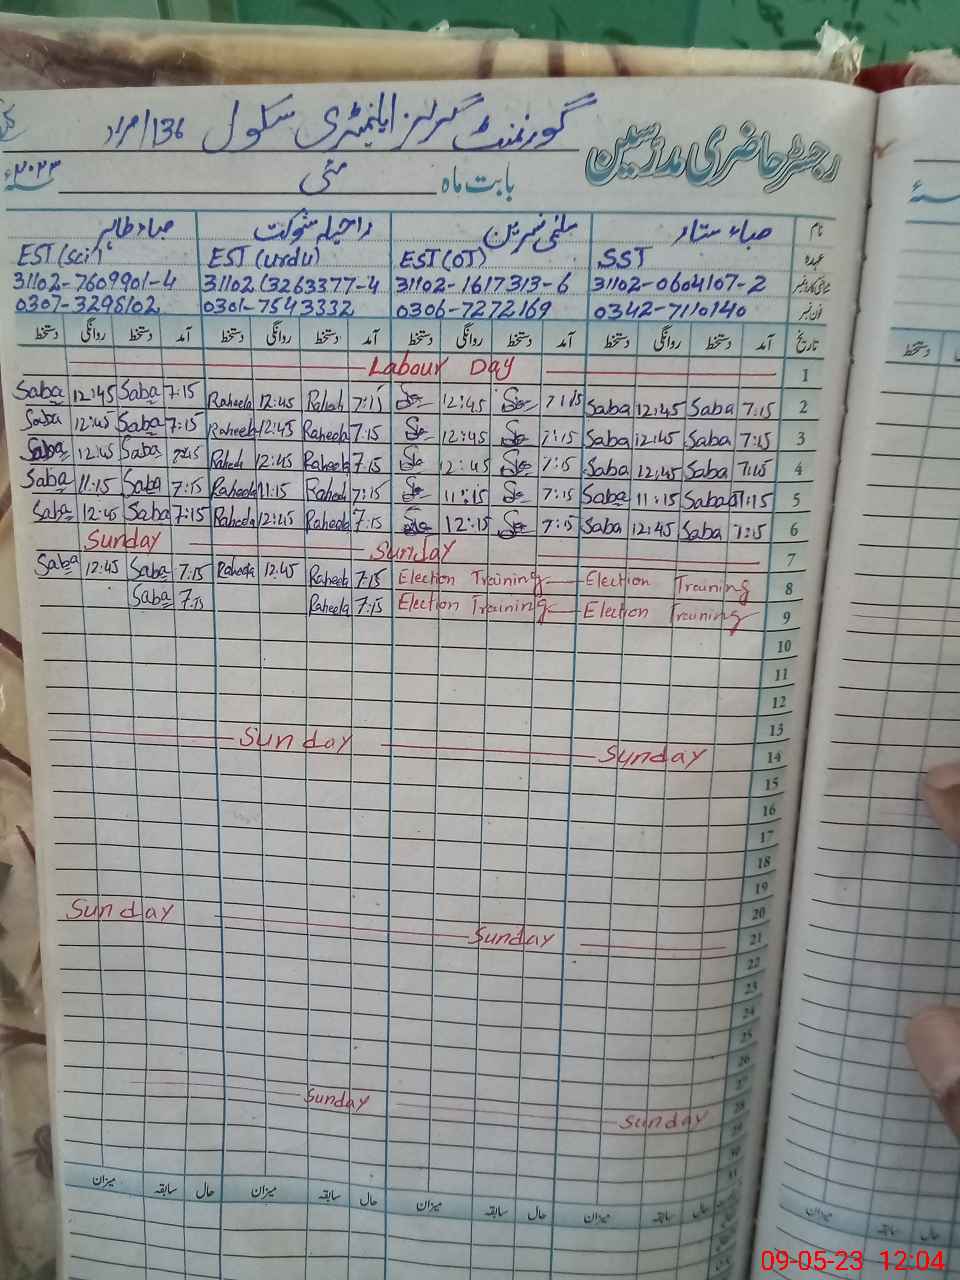 گورنمنٹ گرلز ایلیمنٹری سکول 136/مراد
رجسٹر حاضری مدرسین
بابت ماہ مئی ۲۰۲۳ء
نام صباء ستار سلمیٰ نسرین راحیلہ شوکت صباء طالب
عہدہ SST EST(OT) EST(urdu) EST(sci)
31102-0604107-2 31102-1617313-6 31102 13263377-4 31102-7609901-4
فون نمبر 0342-7110140 0306-7272169 0301-7543332 0307-3298102
تاریخ آمد دستخط روانگی دستخط آمد دستخط روانگی دستخط آمد دستخط روانگی دستخط آمد دستخط روانگی دستخط
Labour Day 1
Saba 12:45 Saba 7:15 Raheela 12:45 7:15 12:45 7:15 Saba 12:45 Saba 7:15 2
Saba 12:45 Saba 7:15 Raheela 12:45 Raheela 7:15 12:45 7:15 Saba 12:45 Saba 7:15 3
Saba 12:45 Saba 7:15 12:45 Raheela 7:15 12:45 7:15 Saba 12:45 Saba 7:15 4
Saba 11:15 Saba 7:15 Raheela 11:15 7:15 11:15 7:15 Saba 11:15 Saba 5
Saba 12:45 Saba 7:15 Raheela 12:45 Raheela 7:15 12:15 7:15 Saba 12:45 Saba 7:15 6
Sunday Sunday 7
Saba 12:45 Saba 7:15 Raheela 12:45 Raheela 7:15 Election Training Election Training 8
Saba 7:15 Raheela 7:15 Election Training Election Training 9
10
11
12
13
Sunday Sunday 14
15
16
17
18
19
Sunday 20
Sunday 21
22
23
24
25
26
27
Sunday Sunday 28
29
30
31
میزان سابقہ حال میزان سابقہ حال میزان سابقہ حال میزان سابقہ حال
دستخط
میزان سابقہ حال
09-05-23 12:04